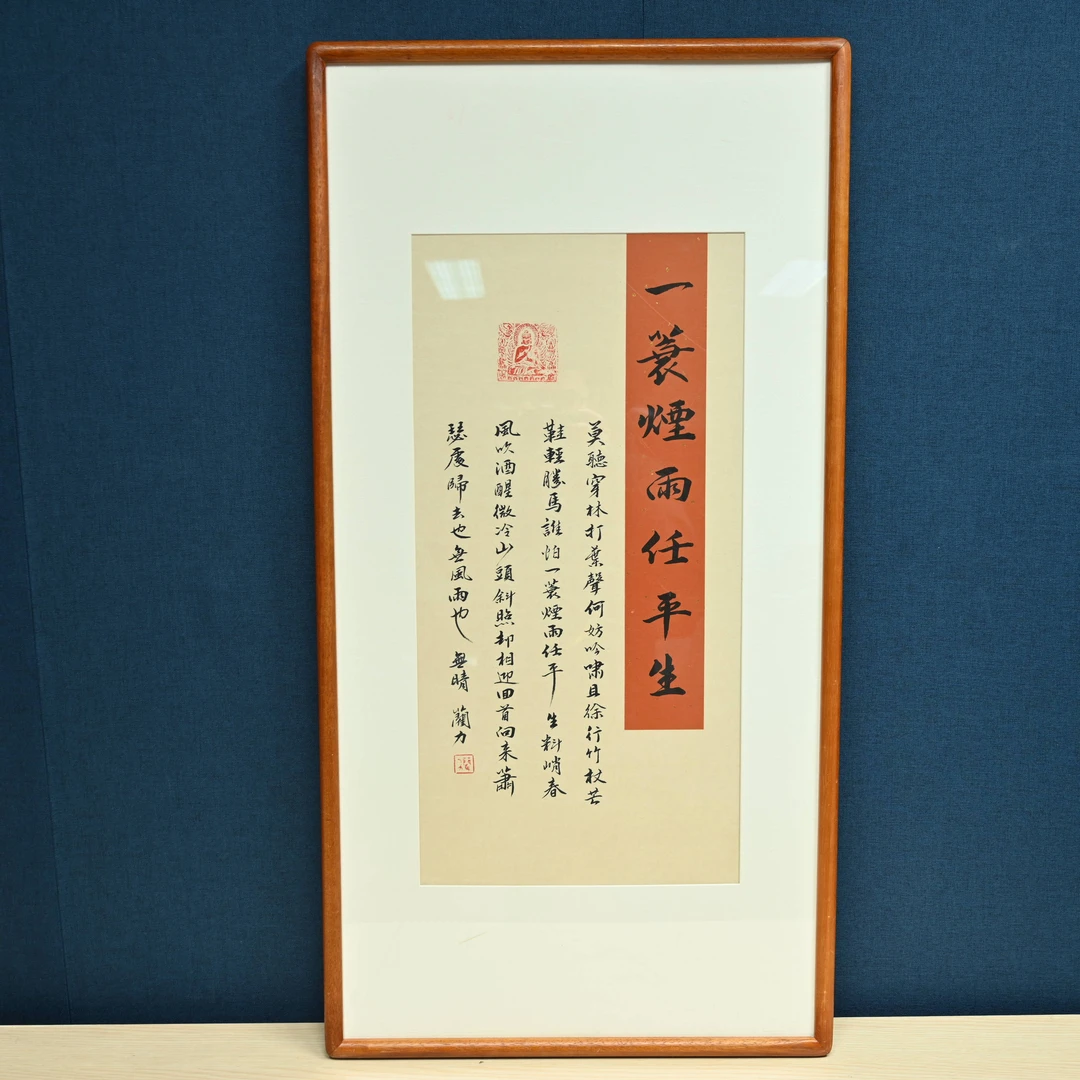 一蓑煙雨任平生
莫聽穿林打葉聲何妨吟嘯且徐行竹杖芒
鞋輕勝馬誰怕一蓑煙雨任平生料峭春
風吹酒醒微冷山頭斜照却相迎回首向来蕭
瑟處歸去也無風雨也無晴